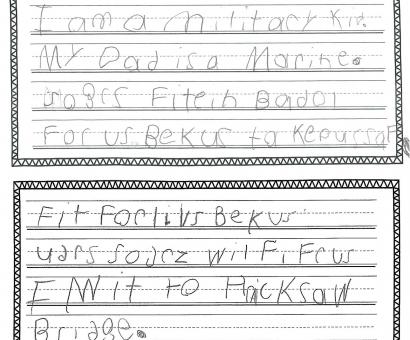 I am a military Kid.
My Dad is a Marine.
Fitein Badol
For us. Bekus to Keepussaf
Fit For livs Bekus
wil Fi Fr us
I W it to Hacksaw
Bridge.